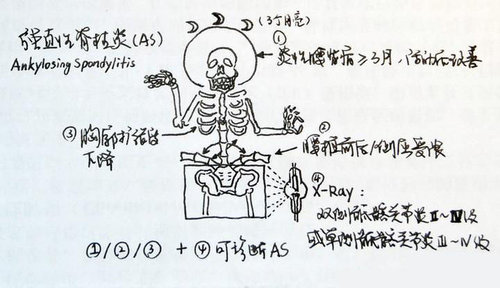 强直性脊柱炎(AS)
Ankylosing Spondylitis
(3个月)
① 炎性腰背痛≥3月,活动后改善
② 腰椎前后/侧屈受限
③ 胸廓扩张度
下降
④
X-Ray:
双侧骶髂关节炎Ⅱ~Ⅳ级
或单侧骶髂关节炎Ⅲ~Ⅳ级
①/②/③ + ④ 可诊断AS